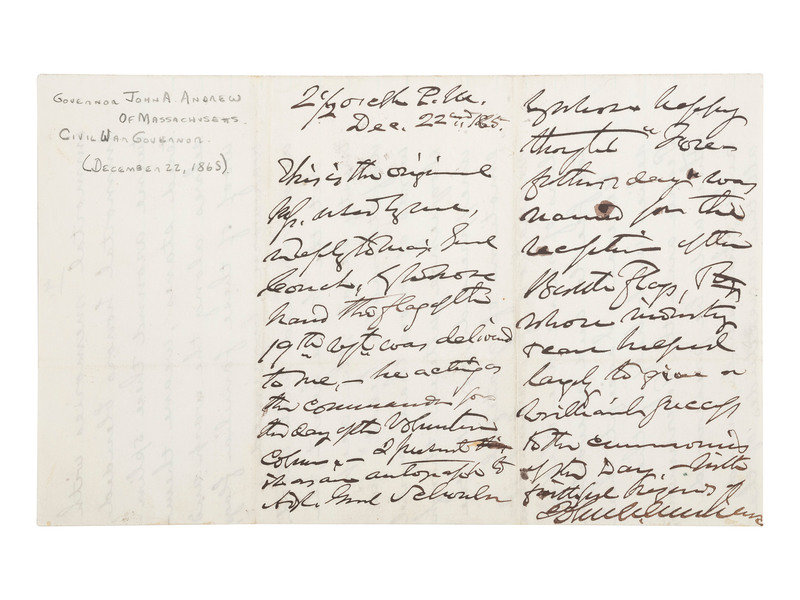 GOVERNOR JOHN A. ANDREW
OF MASSACHUSETTS.
CIVIL WAR GOVERNOR.
(DECEMBER 22, 1865)
2 1/2 o'clk P.M.
Dec. 22nd, 1865.
This is the original
by me,
in reply to Maj. Genl
Couch, by whose
hand the flag of the
19th regt. was delivered
to me, — he acting as
the commander for
the day of the Volunteer
Column — I present
it as an autograph to
Adj. Genl Schouler
by whose happy
thought "Fore-
fathers day" was
named for the
reception of the
Battle Flags, &
whose industry
zeal helped
largely to give a
brilliant success
to the ceremonies
of the Day, — With
faithful regards